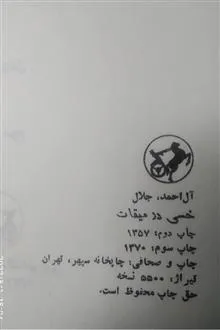 آل‌احمد، جلال
خسی در میقات
چاپ دوم: ۱۳۵۷
چاپ سوم: ۱۳۷۰
چاپ و صحافی: چاپخانه سپهر، تهران
تیراژ: ۵۵۰۰ نسخه
حق چاپ محفوظ است.